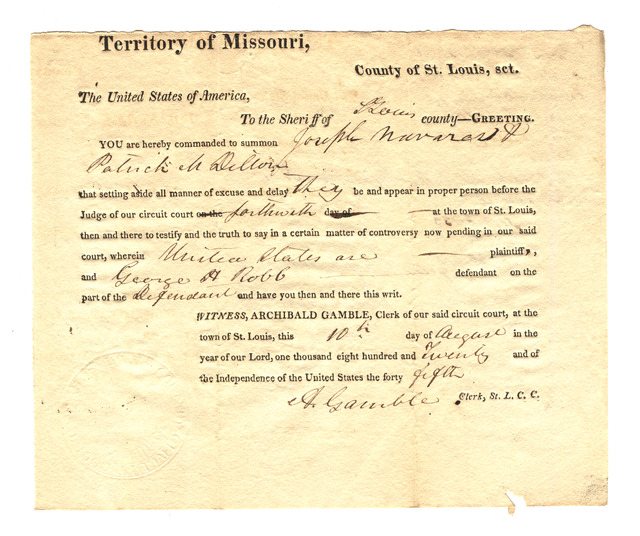 Territory of Missouri,
County of St. Louis, sct.
The United States of America,
To the Sheriff of St Louis county—GREETING.
YOU are hereby commanded to summon Joseph Navarro &
Patrick M Dillon
that setting aside all manner of excuse and delay they be and appear in proper person before the
Judge of our circuit court on the forthwith day of — at the town of St. Louis,
then and there to testify and the truth to say in a certain matter of controversy now pending in our said
court, wherein United States are — plaintiff,,
and George H Robb — defendant on the
part of the Defendant and have you then and there this writ.
WITNESS, ARCHIBALD GAMBLE, Clerk of our said circuit court, at the
town of St. Louis, this 10th day of August in the
year of our Lord, one thousand eight hundred and Twenty and of
the Independence of the United States the forty fifth
A. Gamble Clerk, St. L. C. C.